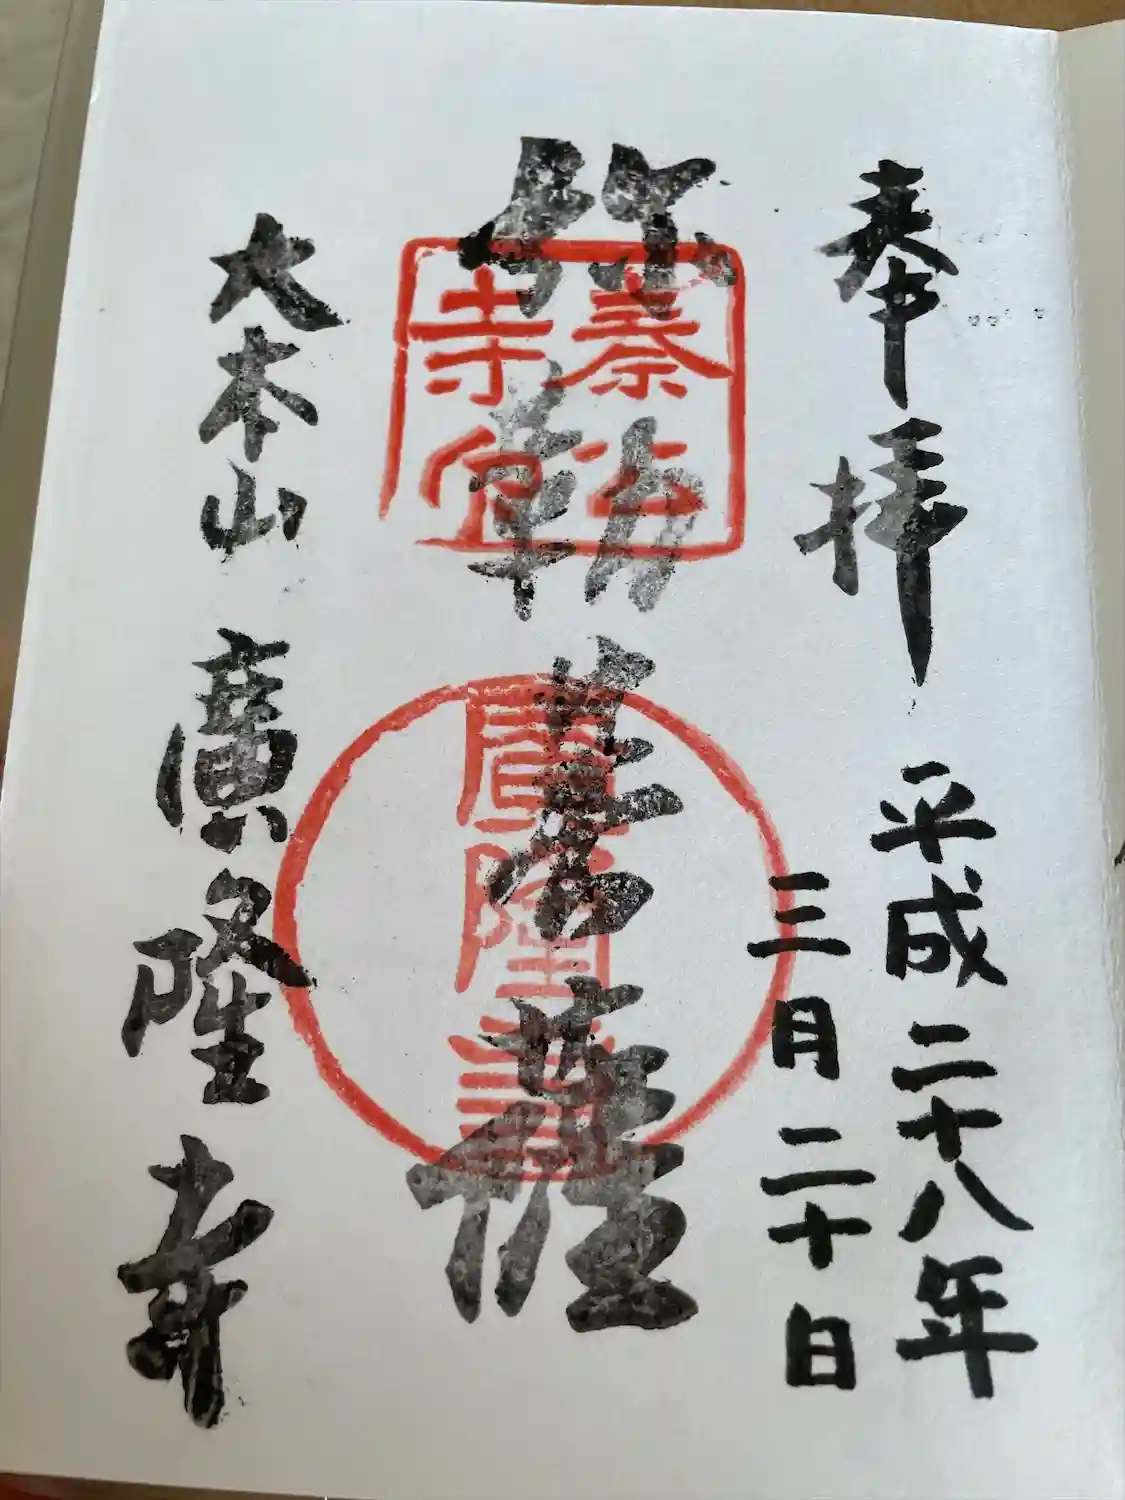 奉拝
平成二十八年
三月二十日
弥勒菩薩
秦公
寺
廣隆
大本山 廣隆寺